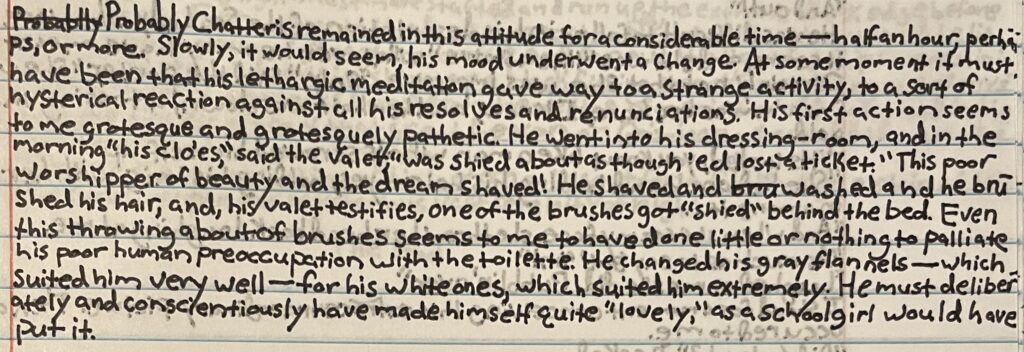 Probablly Probably Chatteris remained in this attitude for a considerable time—half an hour, perha-
ps, or more. Slowly, it would seem, his mood underwent a change. At some moment it must
have been that his lethargic meditation gave way to a strange activity, to a sort of
hysterical reaction against all his resolves and renunciations. His first action seems
to me grotesque and grotesquely pathetic. He went into his dressing-room, and in the
morning "his clo'es," said the valet, "was shied about as though 'e'd lost a ticket." This poor
worshipper of beauty and the dream shaved! He shaved and bru washed and he bru-
shed his hair, and, his valet testifies, one of the brushes got "shied" behind the bed. Even
this throwing about of brushes seems to me to have done little or nothing to palliate
his poor human preoccupation with the toilette. He changed his gray flannels—which
suited him very well—for his white ones, which suited him extremely. He must deliber-
ately and conscientiously have made himself quite "lovely," as a schoolgirl would have
put it.